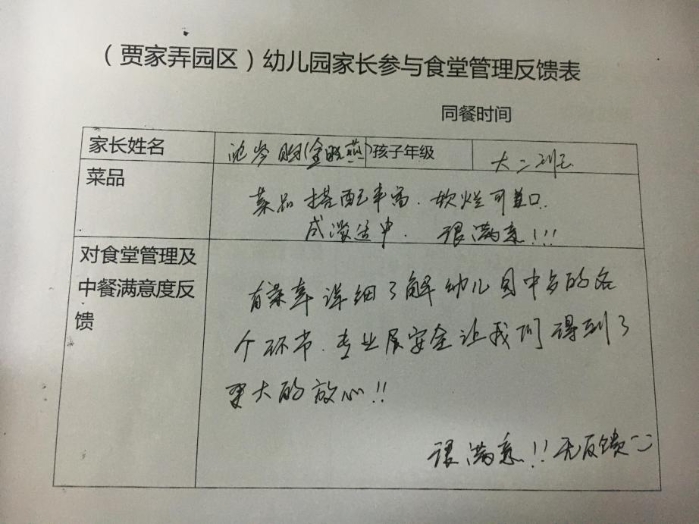 （贾家弄园区）幼儿园家长参与食堂管理反馈表
同餐时间
家长姓名 孩子年级 大二班
菜品 菜品搭配丰富．软烂可口
咸淡适中．很满意!!!
对食堂管理及
中餐满意度反
馈
有幸详细了解幼儿园中餐的各
个环节．专业及安全让我们得到了
更大的放心!!
很满意!!无反馈